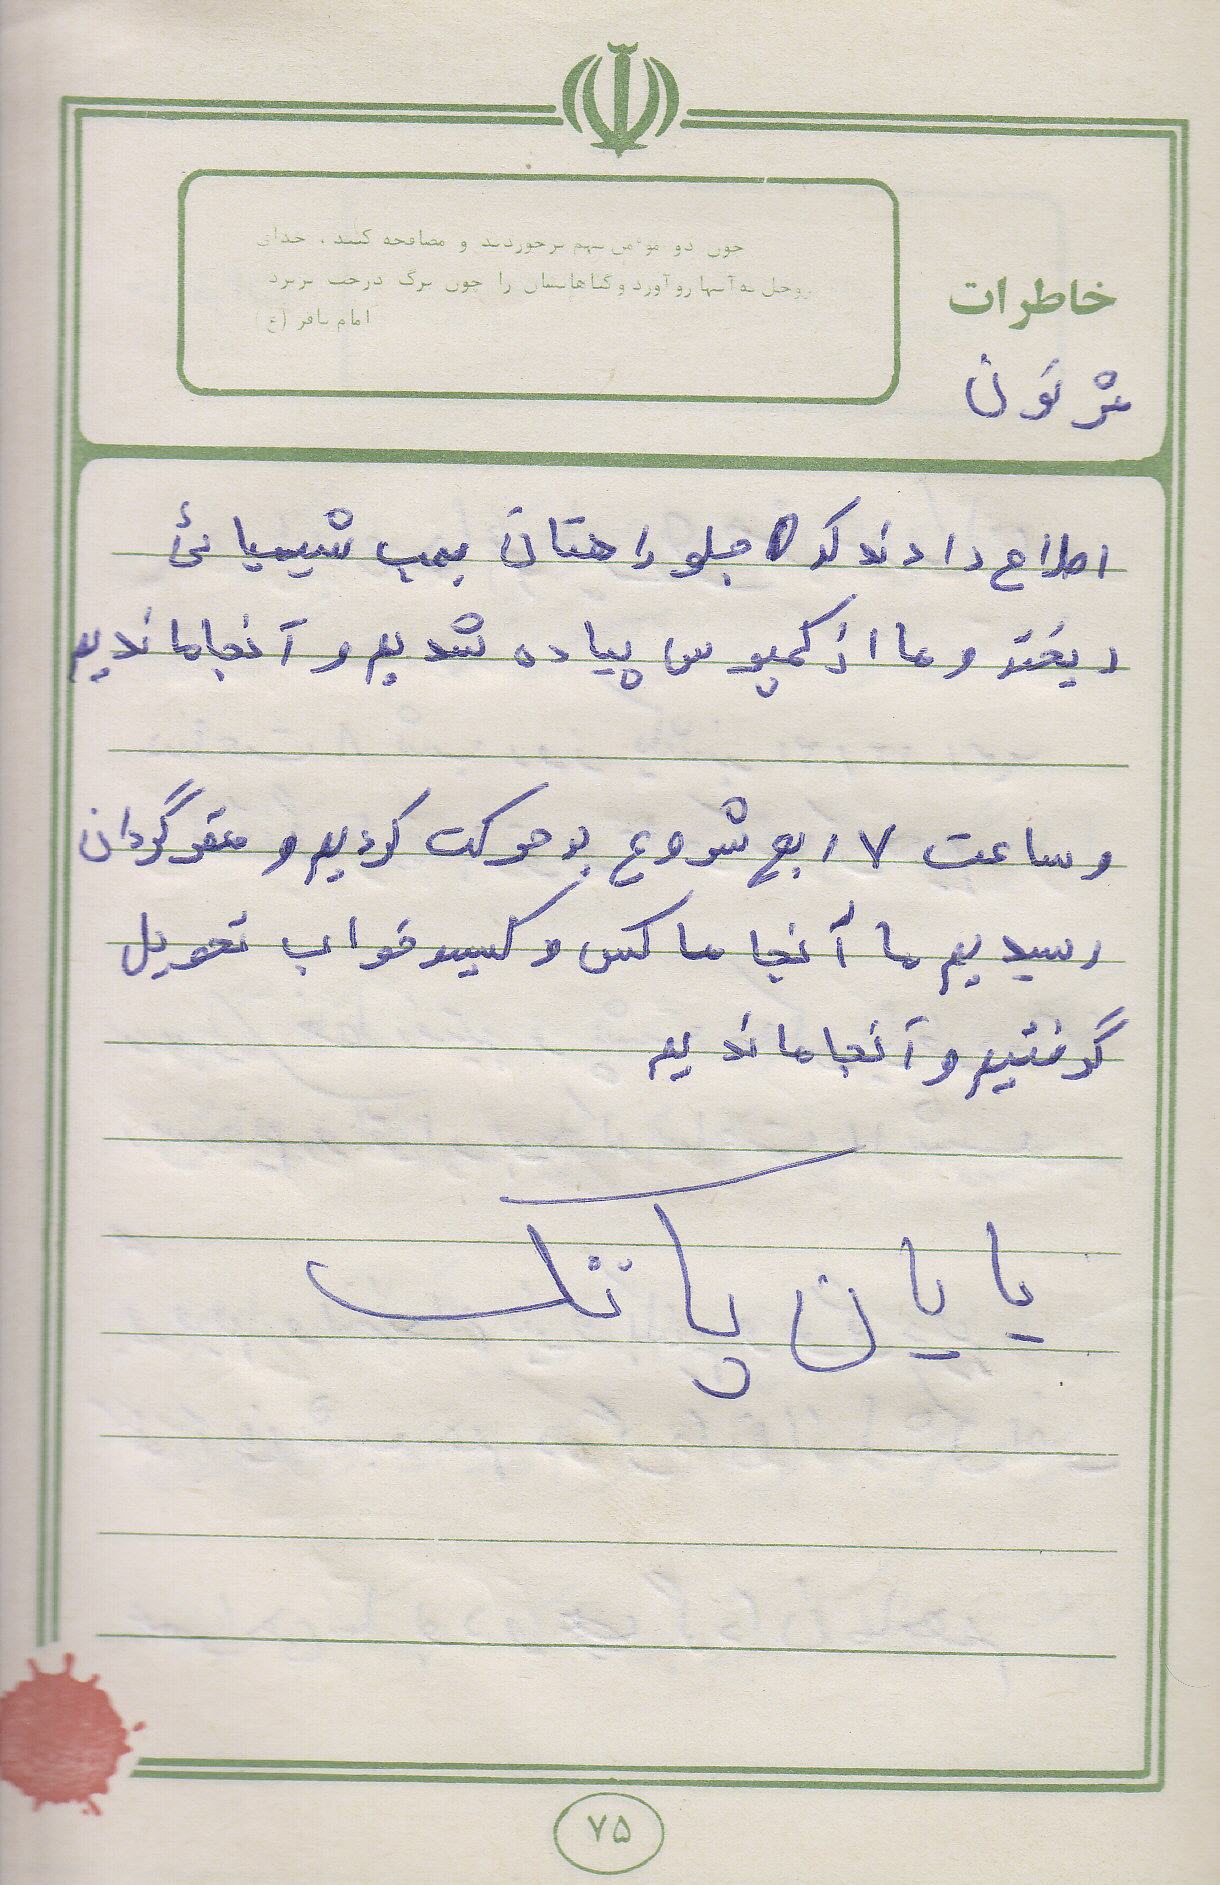 چون دو مؤمن بهم برخوردند و مصافحه کنند ، خدای
عزوجل به آنها رو آورد و گناهانشان را چون برگ درخت بریزد
امام باقر (ع)
خاطرات
اطلاع دادند که جلو راهتان بمب شیمیائی
ریخته و ما از کمپوس پیاده شدیم و آنجا ماندیم
و ساعت ۷ ربع شروع به حرکت کردیم و مقر گردان
رسیدیم ما آنجا ماکس و کیسه خواب تحویل
گرفتیم و آنجا ماندیم
پایان پاتک
۷۵